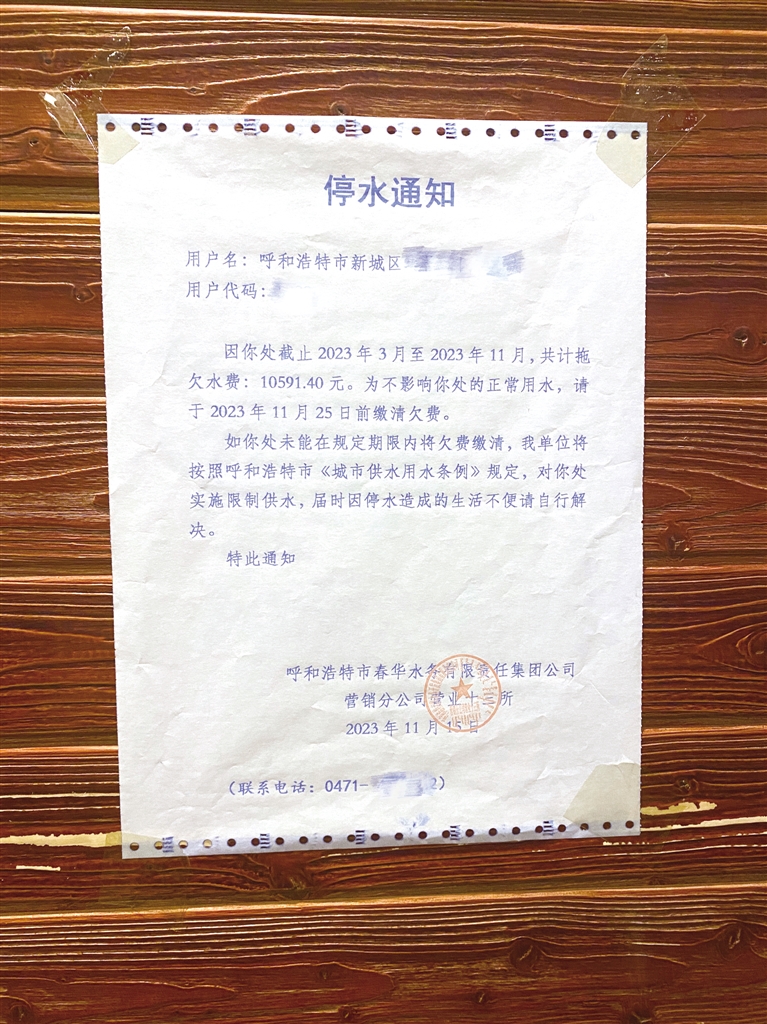 停水通知
用户名：呼和浩特市新城区
用户代码：
因你处截止 2023 年 3 月至 2023 年 11 月，共计拖
欠水费：10591.40 元。为不影响你处的正常用水，请
于 2023 年 11 月 25 日前缴清欠费。
如你处未能在规定期限内将欠费缴清，我单位将
按照呼和浩特市《城市供水用水条例》规定，对你处
实施限制供水，届时因停水造成的生活不便请自行解
决。
特此通知
呼和浩特市春华水务有限责任集团公司
营销分公司营业十 所
2023 年 11 月 15 日
（联系电话：0471- 2）